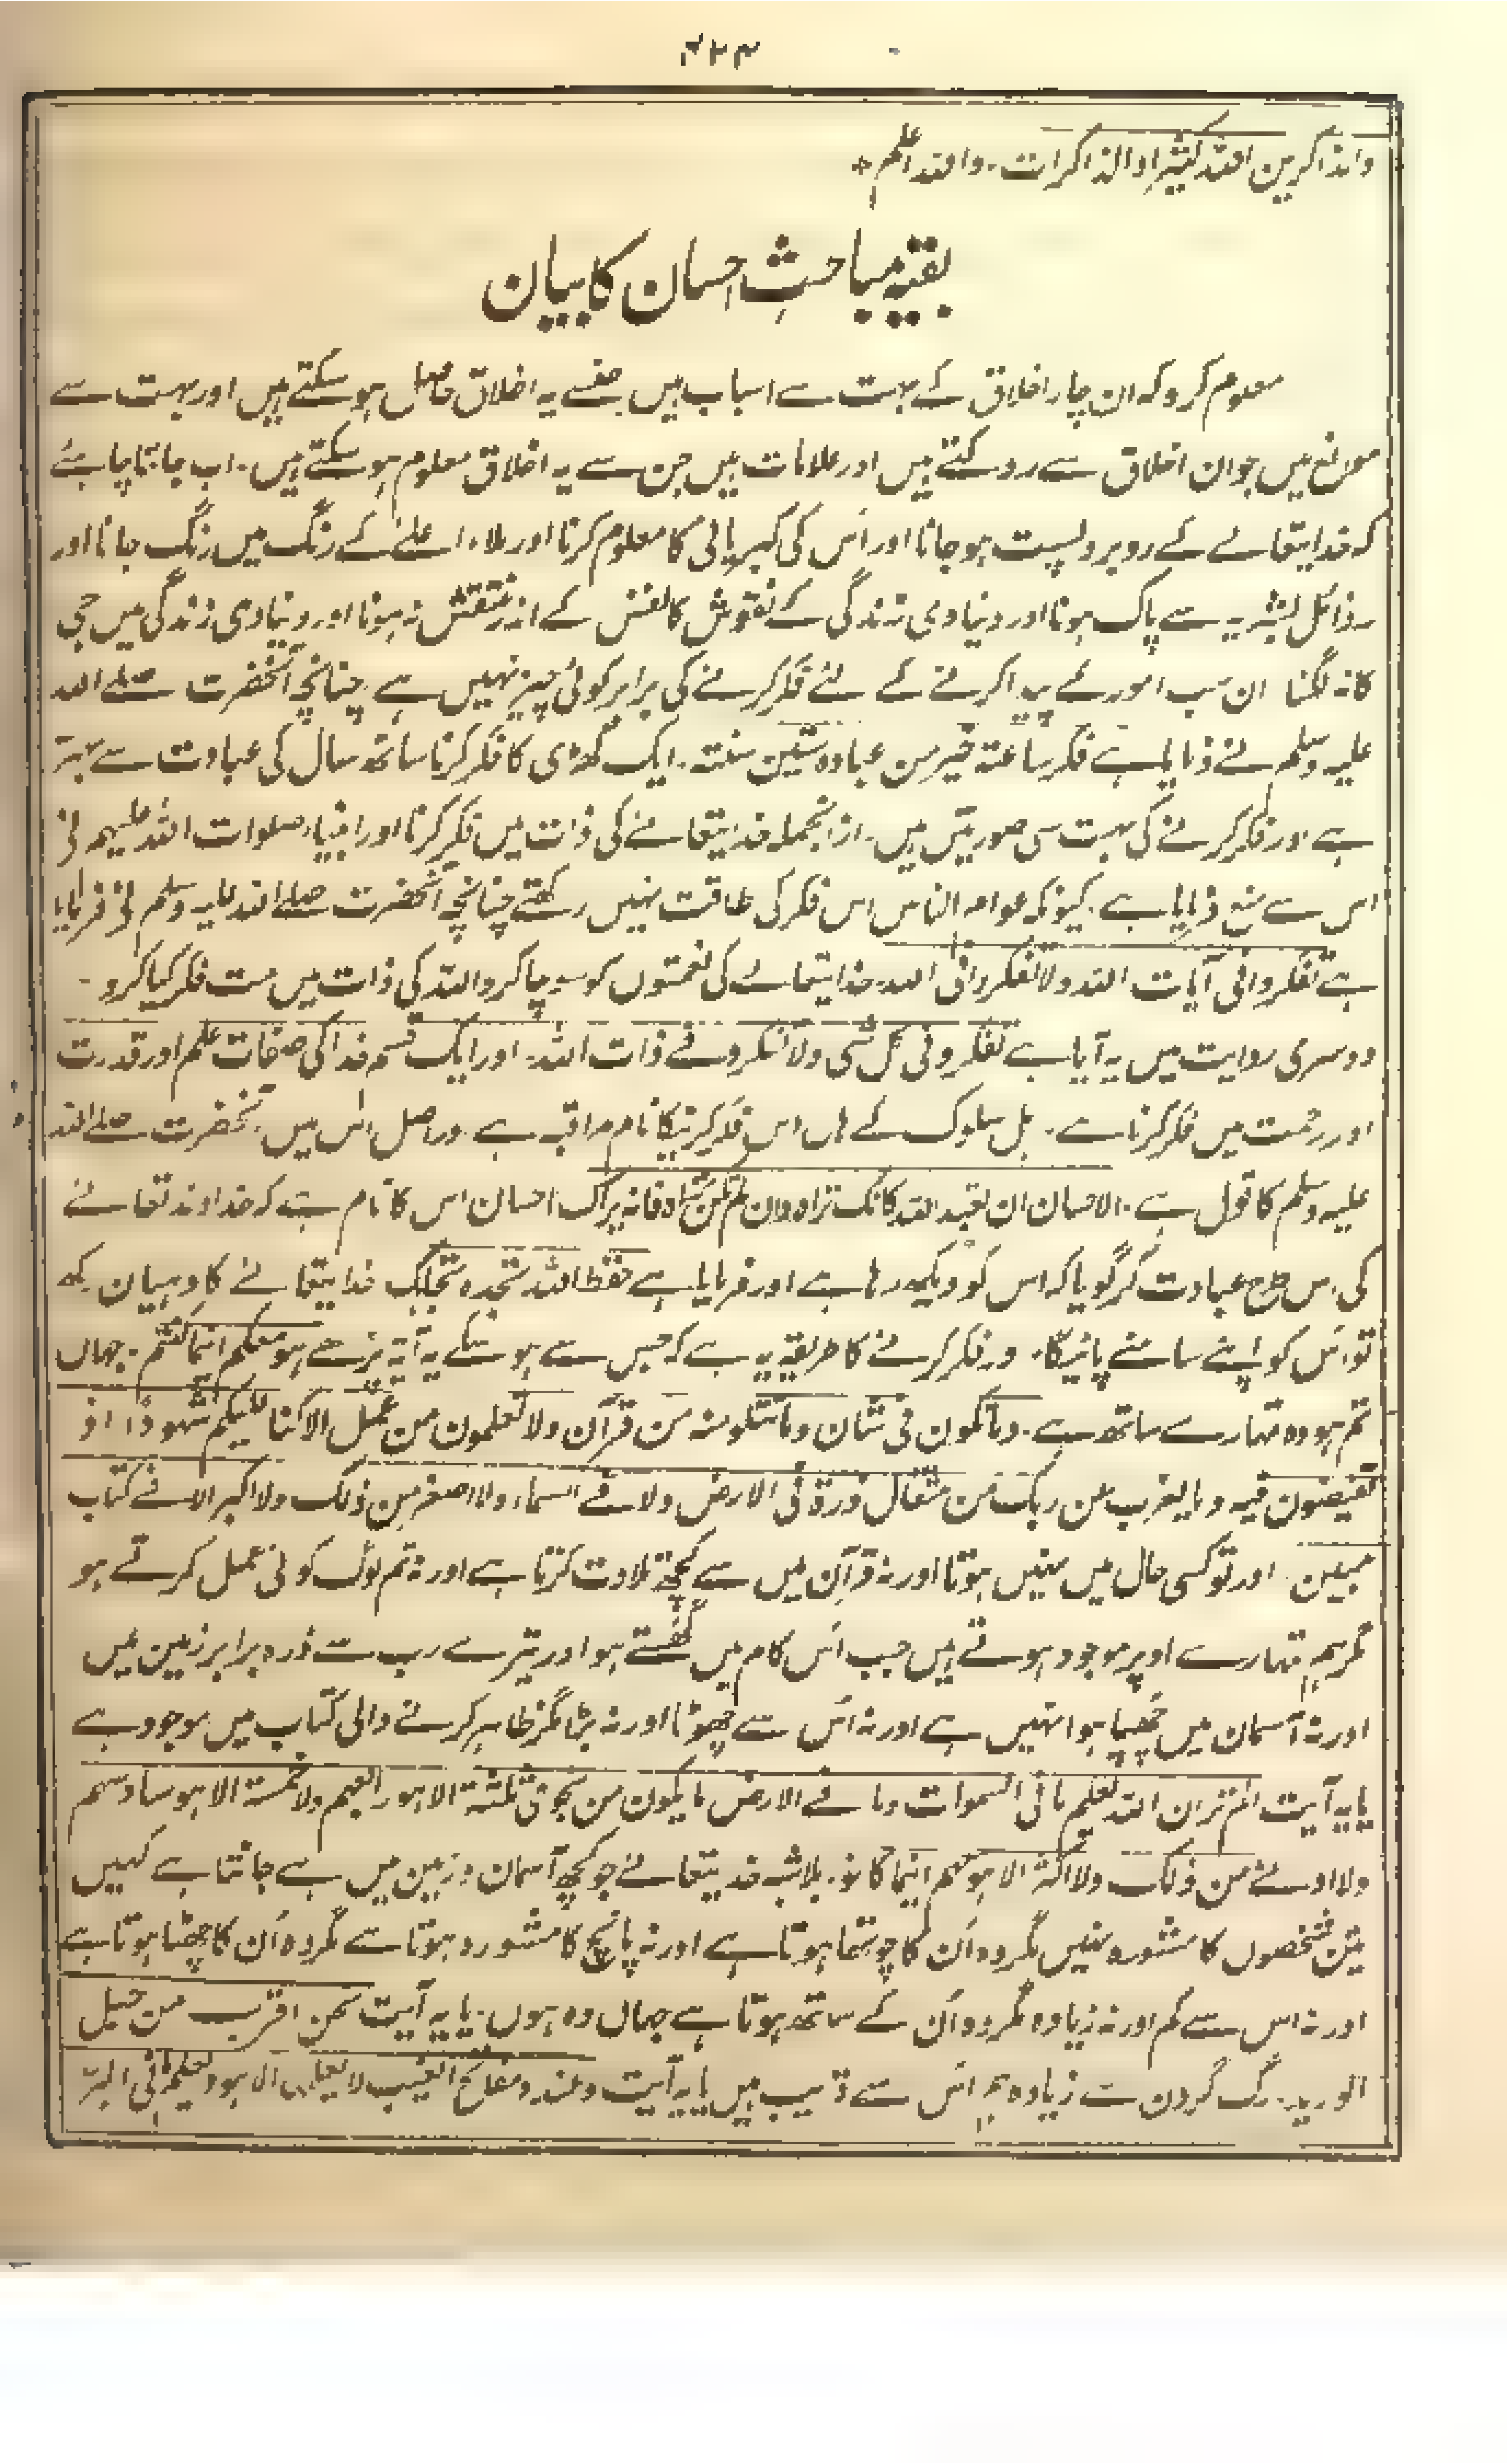 ۴۲۳
والذاکرین اللہ کثیرا والذاکرات۔ واللہ اعلم
بقیہ مباحث احسان کا بیان
معلوم کرو کہ ان چار اخلاق کے بہت سے اسباب ہیں جنسے یہ اخلاق حاصل ہو سکتے ہیں اور بہت سے
موانع ہیں جو ان اخلاق سے روکتے ہیں اور علامات ہیں جن سے یہ اخلاق معلوم ہو سکتے ہیں۔ اب جاننا چاہئے
کہ خدایتعالے کے روبرو پست ہو جانا اور اُس کی کبریائی کا معلوم کرنا اور ملاء اعلے کے رنگ میں رنگ جانا اور
رذائل بشریہ سے پاک ہونا اور دنیاوی زندگی کے نقوش کا نفس کے اندر منتقش نہ ہونا اور دنیاوی زندگی میں جی
کا نہ لگنا ان سب امور کے پیدا کرنے کے لئے فکر کرنے کی برابر کوئی چیز نہیں ہے۔ چنانچہ آنحضرت صلے اللہ
علیہ وسلم نے فرمایا ہے فکر ساعۃ خیر من عبادہ ستین سنتہ۔ ایک گھڑی کا فکر کرنا ساٹھ سال کی عبادت سے بہتر
ہے اور فکر کرنے کی بہت سی صورتیں ہیں۔ ازانجملہ خدایتعالے کی ذات میں فکر کرنا اور انبیاء صلوات اللہ علیہم نی
اس سے منع فرمایا ہے۔ کیونکہ عوام الناس اس فکر کی طاقت نہیں رکھتے چنانچہ آنحضرت صلے اللہ علیہ وسلم نی فرمایا
ہے تفکروا فی آیات اللہ ولا تفکروا فی اللہ۔ خدایتعالے کی نعمتوں کو سوچا کرو اللہ کی ذات میں مت فکر کیا کرو۔
دوسری روایت میں یہ آیا ہے تفکروا فی کل شی ولا تفکروا فے ذات اللہ۔ اور ایک قسم خدا کی صفات علم اور قدرت
اور رحمت میں فکر کرنا ہے۔ اہل سلوک کے ہاں اس فکر کرنیکا نام مراقبہ ہے دراصل اس میں آنحضرت صلے اللہ
علیہ وسلم کا قول ہے۔ الاحسان ان تعبد اللہ کانک تراہ وان لم تکن تراہ فانہ یراک احسان اس کا نام ہے کہ خداوند تعالے
کی اس طرح عبادت کر گویا کہ اس کو دیکھ رہا ہے اور فرمایا ہے حفظ اللہ تجدہ تجاہک خدایتعالے کا دہیان رکھ
تو اُس کو اپنے سامنے پائیگا۔ اور فکر کرنے کا طریقہ یہ ہے کہ جس سے ہو سکے یہ آیۃ پڑھے ہو معکم اینما کنتم۔ جہاں
تم ہو وہ تمہارے ساتھ ہے۔ وما تکون فی شان وما تتلو منہ من قرآن ولا تعلمون من عمل الا کنا علیکم شہودًا اذ
تفیضون فیہ وما یعزب عن ربک من مثقال ذرۃ فی الارض ولا فے السماء ولا اصغر من ذلک ولا اکبر الا فے کتاب
مبین۔ اور تو کسی حال میں نہیں ہوتا اور نہ قرآن میں سے کچھ تلاوت کرتا ہے اور نہ تم لوگ کوئی عمل کرتے ہو
مگر ہم تمہارے اوپر موجود ہوتے ہیں جب اُس کام میں گھستے ہو اور تیرے رب سے ذرہ برابر زمین میں
اور نہ آسمان میں چُھپا ہوا نہیں ہے اور نہ اُس سے چھوٹا اور نہ بڑا مگر ظاہر کرنے والی کتاب میں موجود ہے
یا یہ آیت الم تر ان اللہ یعلم ما فی السموات وما فے الارض ما یکون من نجوی ثلثۃ الا ہو رابعہم ولا خمسۃ الا ہو سادسہم
ولا ادنے من ذلک ولا اکثر الا ہو معہم اینما کانو۔ بلاشبہ خدایتعالے جو کچھ آسمان و زمین میں ہے جانتا ہے کہیں
تین شخصوں کا مشورہ نہیں مگر وہ اُن کا چوتھا ہوتا ہے اور نہ پانچ کا مشورہ ہوتا ہے مگر وہ اُن کا چھٹا ہوتا ہے
اور نہ اس سے کم اور نہ زیادہ مگر وہ اُن کے ساتھ ہوتا ہے جہاں وہ ہوں۔ یا یہ آیت نحن اقرب من حبل
الورید۔ رگ گردن سے زیادہ ہم اُس سے قریب ہیں یا یہ آیت وعندہ مفاتح الغیب لا یعلمہا الا ہو ویعلم ما فی البر